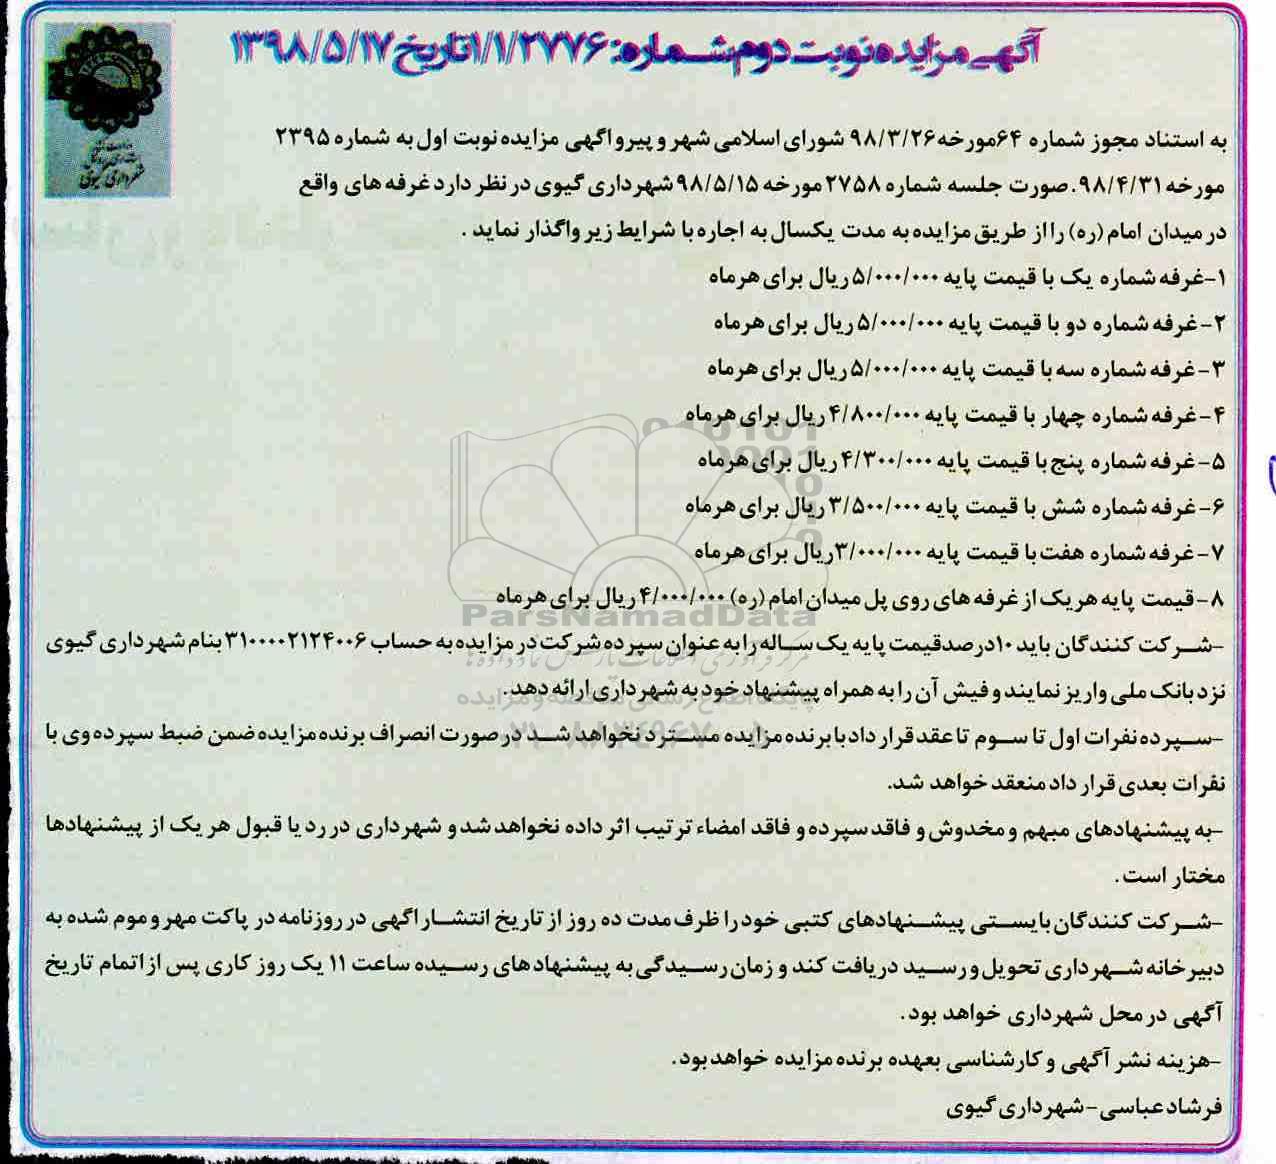 آگهی مزایده نوبت دوم شماره: ۱/۱/۲۷۷۶ تاریخ ۱۳۹۸/۵/۱۷
به استناد مجوز شماره ۶۴مورخه ۹۸/۳/۲۶ شورای اسلامی شهر و پیرو اگهی مزایده نوبت اول به شماره ۲۳۹۵
مورخه ۹۸/۴/۳۱. صورت جلسه شماره ۲۷۵۸ مورخه ۹۸/۵/۱۵ شهرداری گیوی در نظر دارد غرفه های واقع
در میدان امام (ره) را از طریق مزایده به مدت یکسال به اجاره با شرایط زیر واگذار نماید .
۱-غرفه شماره یک با قیمت پایه ۵/۰۰۰/۰۰۰ ریال برای هرماه
۲-غرفه شماره دو با قیمت پایه ۵/۰۰۰/۰۰۰ ریال برای هرماه
۳-غرفه شماره سه با قیمت پایه ۵/۰۰۰/۰۰۰ ریال برای هرماه
۴-غرفه شماره چهار با قیمت پایه ۴/۸۰۰/۰۰۰ ریال برای هرماه
۵-غرفه شماره پنج با قیمت پایه ۴/۳۰۰/۰۰۰ ریال برای هرماه
۶-غرفه شماره شش با قیمت پایه ۳/۵۰۰/۰۰۰ ریال برای هرماه
۷-غرفه شماره هفت با قیمت پایه ۳/۰۰۰/۰۰۰ریال برای هرماه
۸-قیمت پایه هر یک از غرفه های روی پل میدان امام (ره) ۴/۰۰۰/۰۰۰ ریال برای هرماه
ParsNamadData
-شرکت کنندگان باید ۱۰درصدقیمت پایه یک ساله را به عنوان سپرده شرکت در مزایده به حساب ۳۱۰۰۰۰۲۱۲۴۰۰۶ بنام شهرداری گیوی
نزد بانک ملی واریز نمایند و فیش آن را به همراه پیشنهاد خود به شهرداری ارائه دهد.
-سپرده نفرات اول تا سوم تا عقد قرار داد با برنده مزایده مسترد نخواهد شد در صورت انصراف برنده مزایده ضمن ضبط سپرده وی با
نفرات بعدی قرار داد منعقد خواهد شد.
-به پیشنهادهای مبهم و مخدوش و فاقد سپرده و فاقد امضاء ترتیب اثر داده نخواهد شد و شهرداری در رد یا قبول هر یک از پیشنهادها
مختار است.
-شرکت کنندگان بایستی پیشنهادهای کتبی خود را ظرف مدت ده روز از تاریخ انتشار اگهی در روزنامه در پاکت مهر و موم شده به
دبیرخانه شهرداری تحویل و رسید دریافت کند و زمان رسیدگی به پیشنهادهای رسیده ساعت ۱۱ یک روز کاری پس از اتمام تاریخ
آگهی در محل شهرداری خواهد بود.
-هزینه نشر آگهی و کارشناسی بعهده برنده مزایده خواهد بود.
فرشاد عباسی-شهرداری گیوی